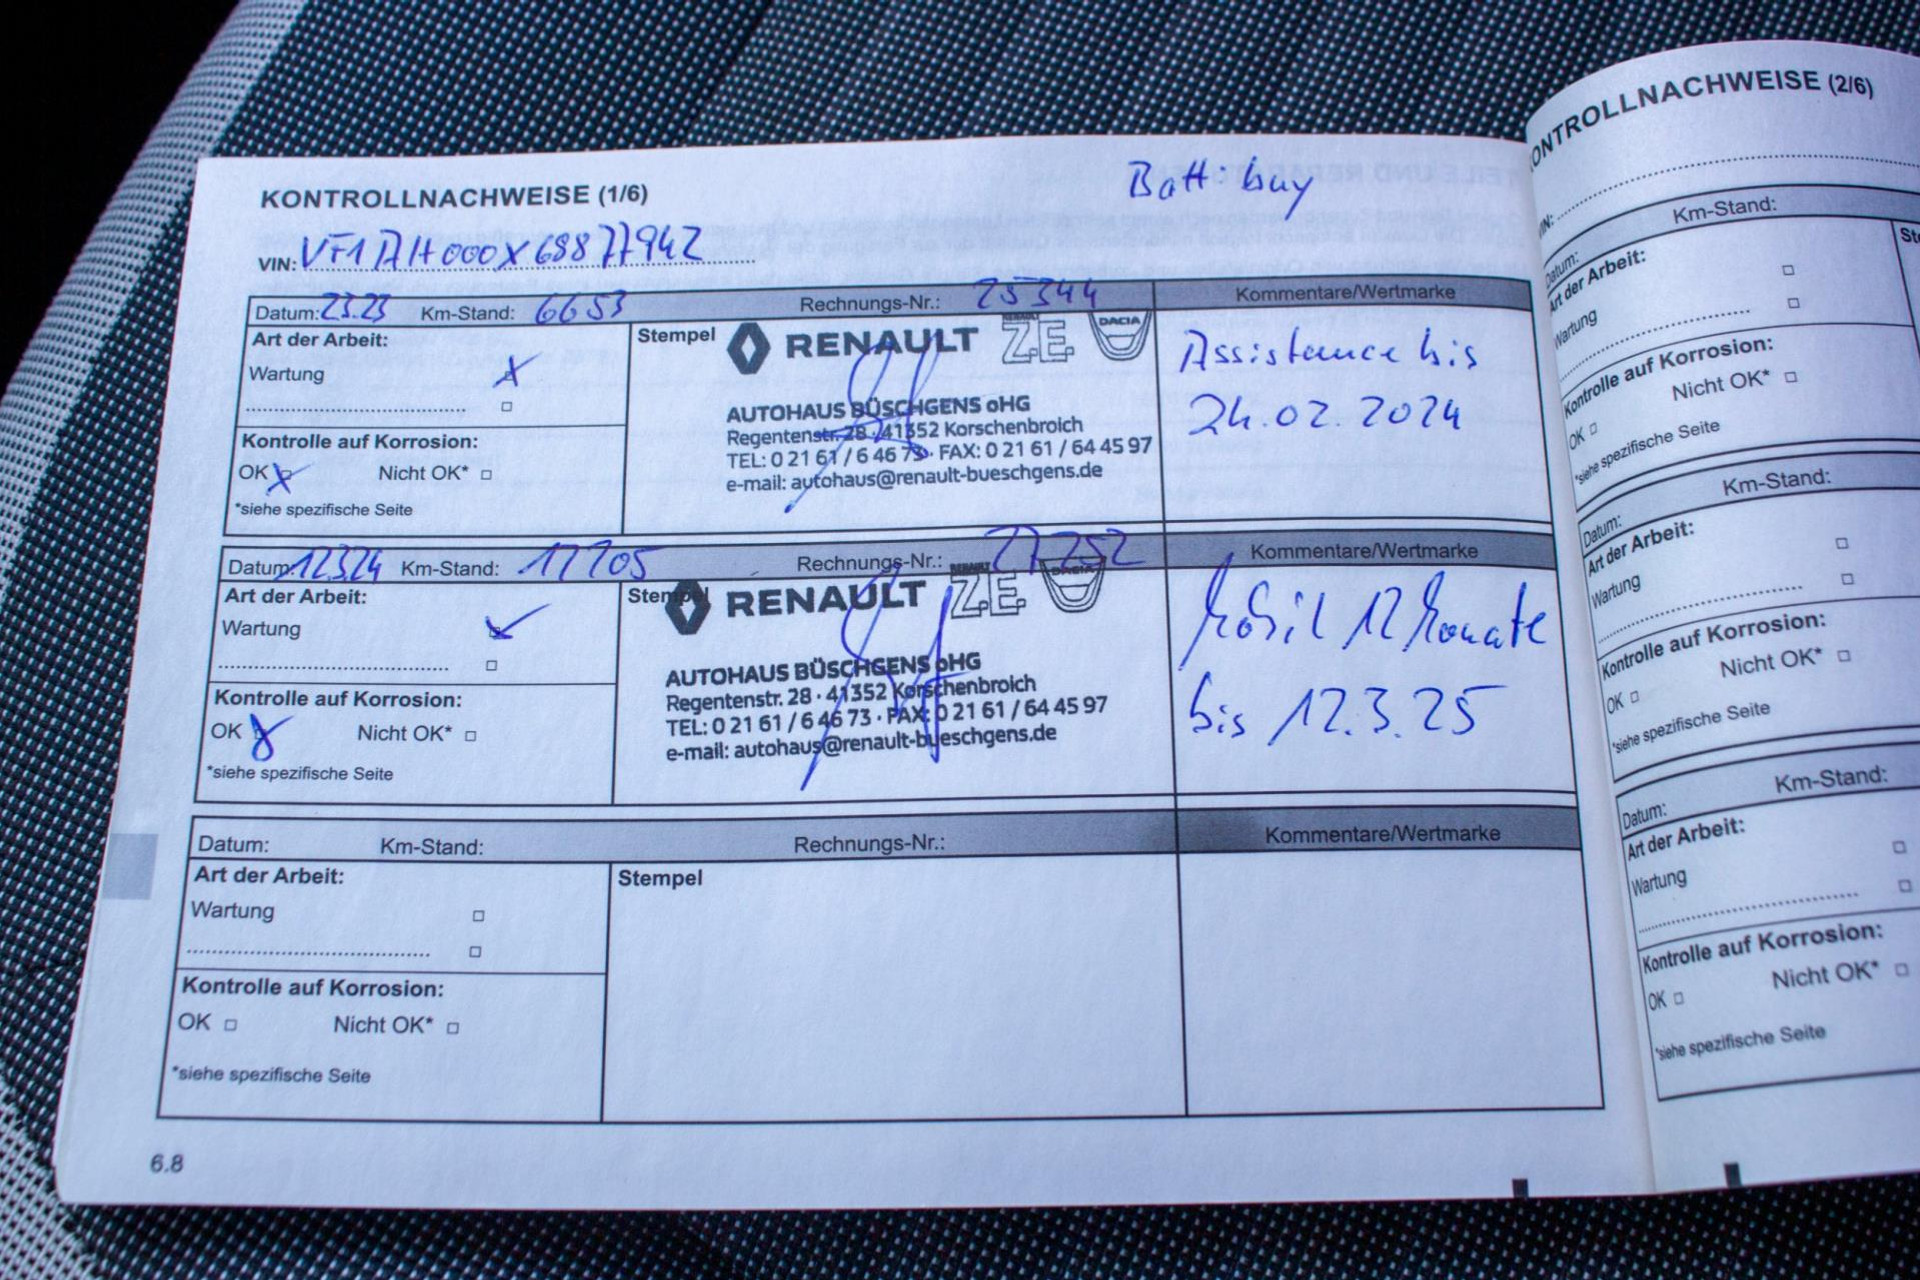 KONTROLLNACHWEISE (1/6)
Batt: buy
VIN: VF1AH000X68877942
Datum: 23.23 Km-Stand: 6653 Rechnungs-Nr.: 25344 Kommentare/Wertmarke
Art der Arbeit:
Wartung
Kontrolle auf Korrosion:
OK Nicht OK*
*siehe spezifische Seite
Stempel RENAULT RENAULT ZE DACIA
AUTOHAUS BÜSCHGENS oHG
Regentenstr. 28 · 41352 Korschenbroich
TEL: 0 21 61 / 6 46 73 · FAX: 0 21 61 / 64 45 97
e-mail: autohaus@renault-bueschgens.de
Assistance bis
24.02.2024
Datum: 12.3.24 Km-Stand: Rechnungs-Nr.: 27252 Kommentare/Wertmarke
Art der Arbeit:
Wartung
Kontrolle auf Korrosion:
OK Nicht OK*
*siehe spezifische Seite
Stempel RENAULT RENAULT ZE DACIA
AUTOHAUS BÜSCHGENS oHG
Regentenstr. 28 · 41352 Korschenbroich
TEL: 0 21 61 / 6 46 73 · FAX: 0 21 61 / 64 45 97
e-mail: autohaus@renault-bueschgens.de
Mobil 12 Monate
bis 12.3.25
Datum: Km-Stand: Rechnungs-Nr.: Kommentare/Wertmarke
Art der Arbeit:
Wartung
Kontrolle auf Korrosion:
OK Nicht OK*
*siehe spezifische Seite
Stempel
6.8
ONTROLLNACHWEISE (2/6)
IN:
Datum: Km-Stand:
Art der Arbeit:
Wartung
Kontrolle auf Korrosion:
OK Nicht OK*
*siehe spezifische Seite
Ste
Datum: Km-Stand:
Art der Arbeit:
Wartung
Kontrolle auf Korrosion:
OK Nicht OK*
*siehe spezifische Seite
Datum: Km-Stand:
Art der Arbeit:
Wartung
Kontrolle auf Korrosion:
OK Nicht OK*
*siehe spezifische Seite